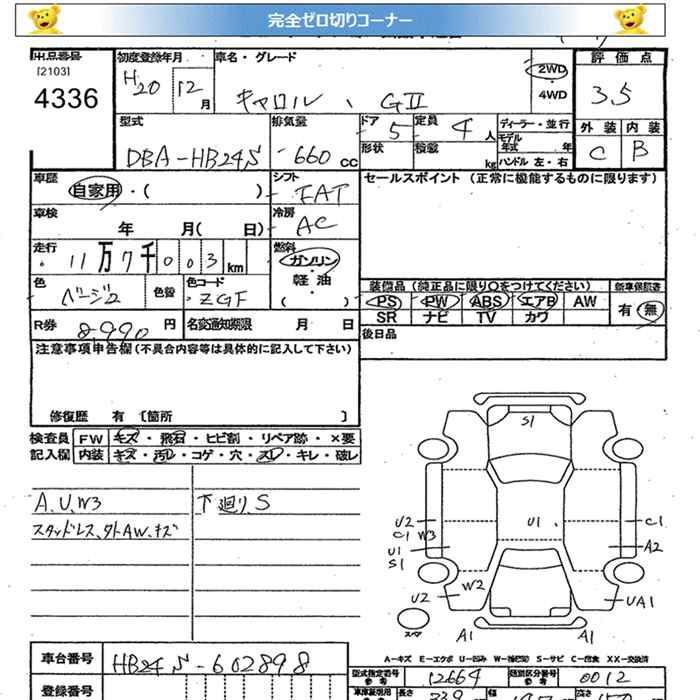 完全ゼロ切りコーナー
出品番号 初度登録年月 車名・グレード 評価点
[2103]
4336
H20 12月 キャロル、GⅡ 2WD 3.5
4WD
型式 排気量 ドア 5 定員 4人 ディーラー・並行 外装 内装
モデル年式 年
DBA-HB24S 660cc 形状 積載 kg ハンドル 左・右 C B
車歴 シフト セールスポイント (正常に機能するものに限ります)
自家用・( ) FAT
車検 冷房
年 月( 日) AC
走行 燃料
11万7千003km ガソリン・
軽油・
色 色替 色コード ( ) 装備品 (純正品に限り○をつけてください) 新車保証書
ベージュ ZGF PS PW ABS エアB AW 有 無
SR ナビ TV カワ
R券 8,990円 名変通知期限 月 日 後日品
注意事項申告欄(不具合内容等は具体的に記入して下さい)
修復歴 有 〔箇所 〕
検査員 FW キズ・飛石・ヒビ割・リペア跡・×要
記入欄 内装 キズ・汚レ・コゲ・穴・スレ・キレ・破レ
A、U、W3 下廻りS
スタッドレス、外AW、キズ
S1
U2 U1 C1
C1 W3
U1 A2
S1
W2
U2 UA1
スペア A1 A1
A-キズ E-エクボ U-凹み W-補修跡 S-サビ C-腐食 XX-交換済
車台番号 HB24S-602898 型式指定番号 12664 類別区分番号 0012
参考 参考
登録番号 長さ 339 幅 147 高さ 150